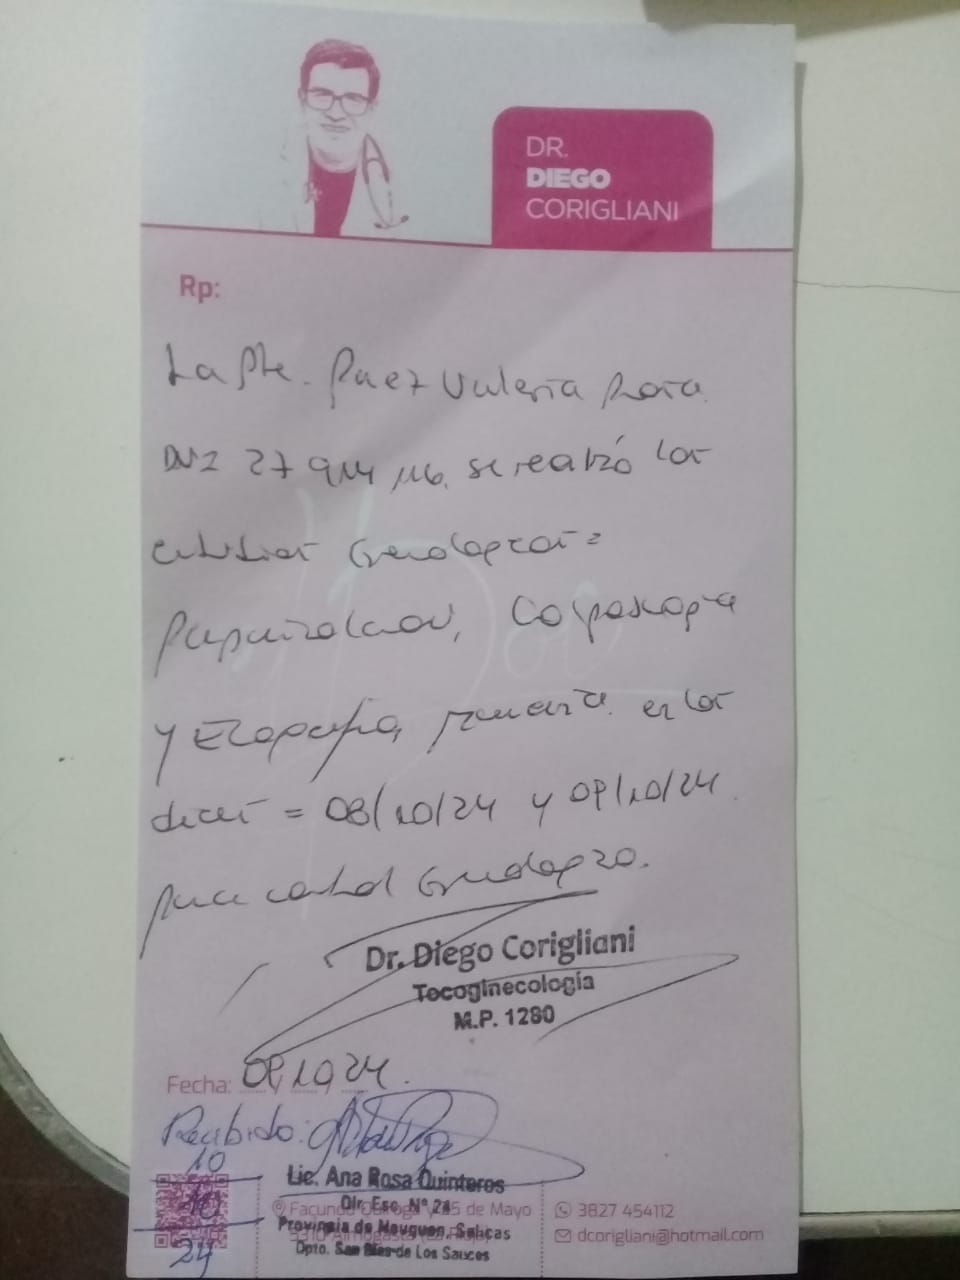 DR.
DIEGO
CORIGLIANI
Rp:
La Pte. Paez Valeria
DNI 27 914 116. se realizó los
estudios Ginecologicos =
Papanicolaou, Colposcopia
y Ecografia, en los
dias = 08/10/24 y 09/10/24.
para control Ginecologico.
Dr. Diego Corigliani
Tocoginecología
M.P. 1280
Fecha: 09/10/24.
Recibido:
10
10
24
Lic. Ana Rosa Quinteros
Dir. Esc. Nº 21
Facundo Quiroga 25 de Mayo
Provincia de Neuquen, Salicas
Dpto. San Blas de Los Sauces
3827 454112
dcorigliani@hotmail.com